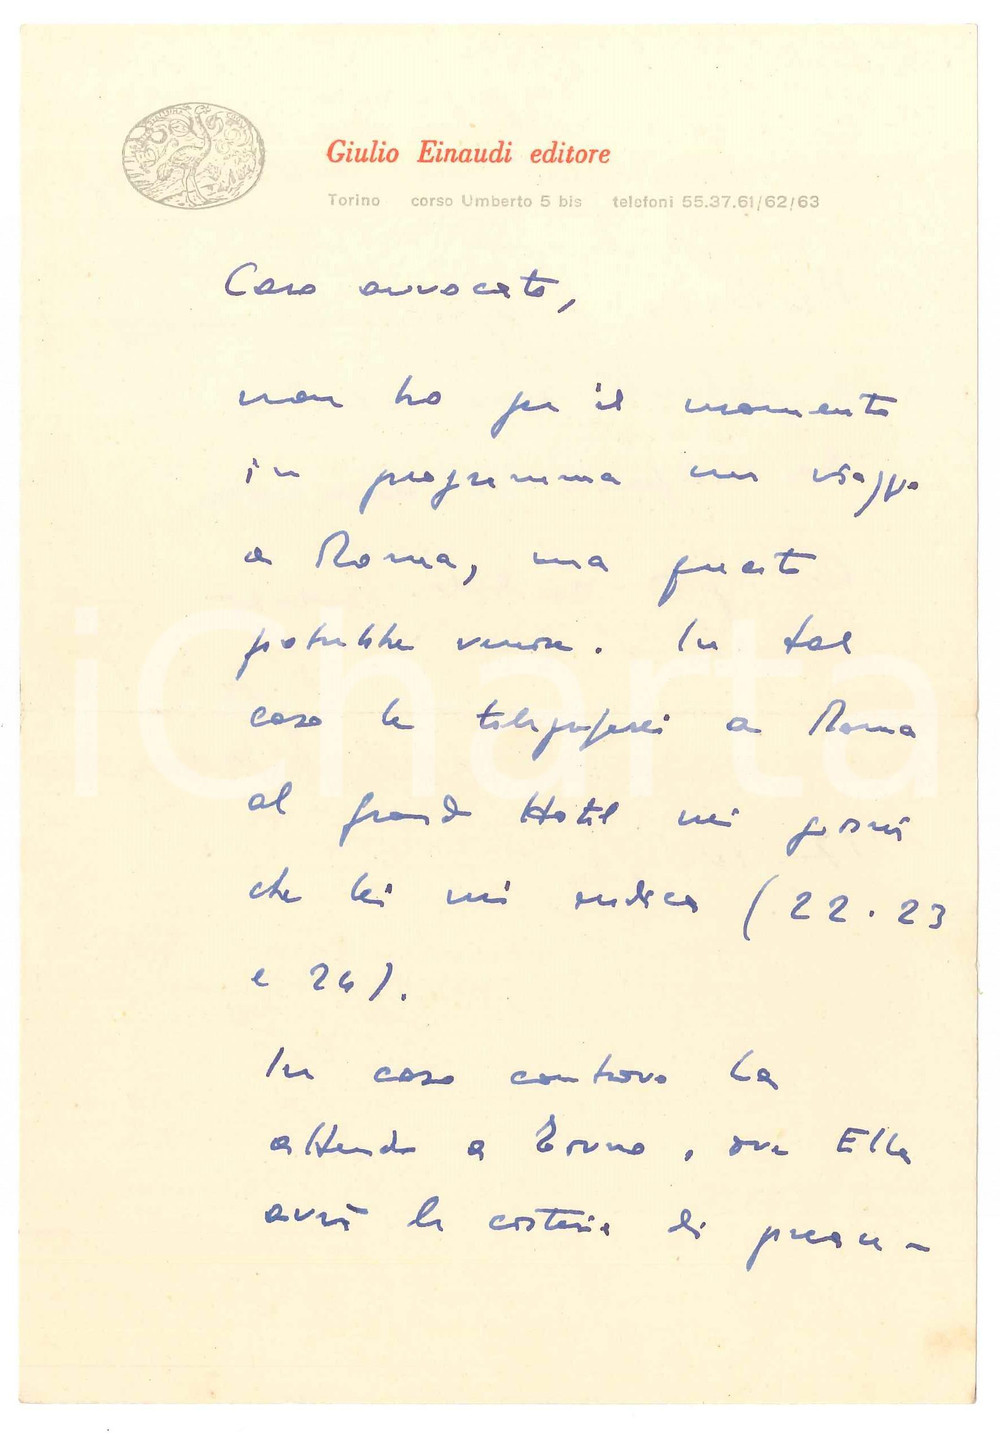 Giulio Einaudi editore
Torino corso Umberto 5 bis telefoni 55.37.61/62/63
Caro avvocato,
non ho per il momento
in programma un viaggio
a Roma, ma questo
potrebbe venire. In tal
caso le telegraferei a Roma
al Grand Hotel nei giorni
che lei mi indica (22.23
e 24).
In caso contrario La
attendo a Torino, ove Ella
avrà la cortesia di preav-
iCharta